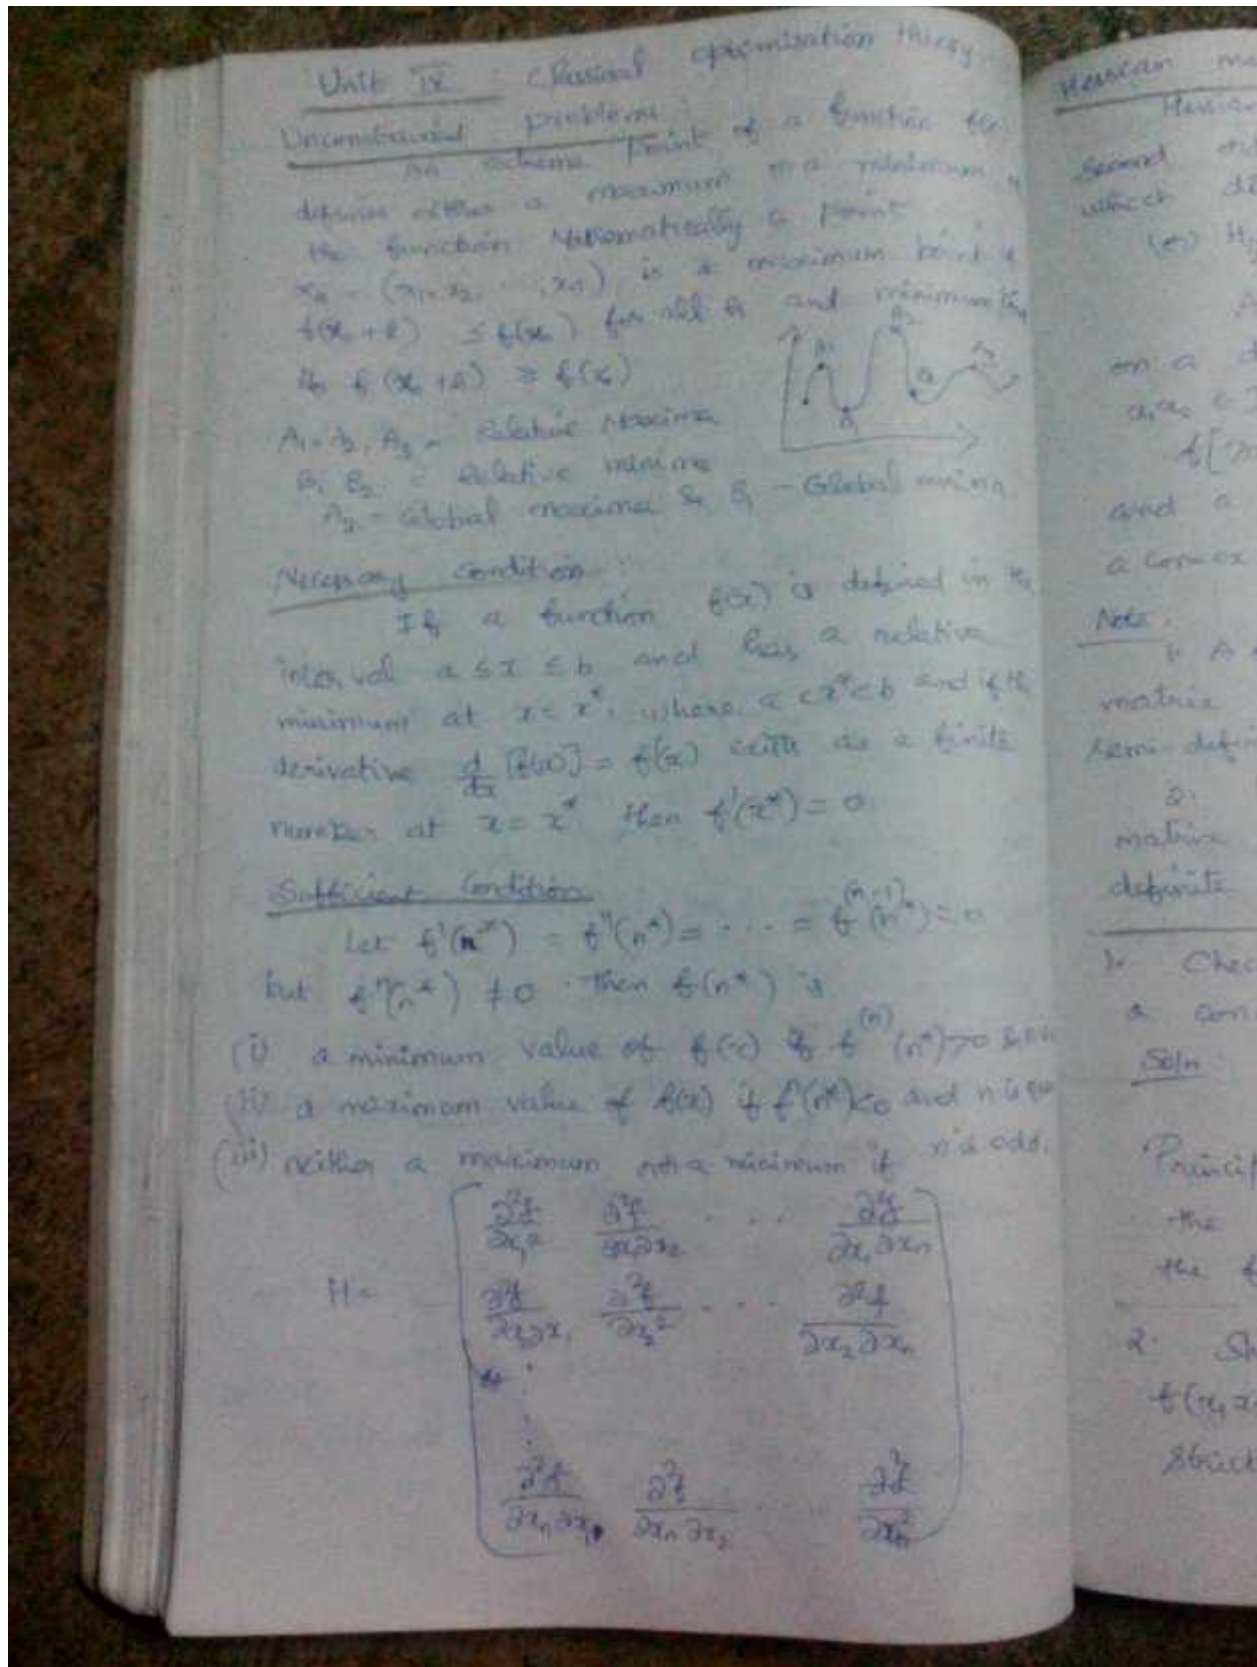 Unit IV : Classical optimisation theory
Unconstrained problems:
An extreme point of a function f(x)
defines either a maximum or a minimum of
the function. Mathematically a point
x₀ = (x₁, x₂, ..., xₙ) is a maximum point if
f(x₀ + h) ≤ f(x₀) for all h and minimum
if f(x₀ + h) ≥ f(x₀)
A₁
A₂
A₃
B₁
B₂
A₁, A₂, A₃ - Relative Maxima
B₁ B₂ = Relative minima
A₂ - Global maxima & B₁ - Global minima
Necessary Condition :
If a function f(x) is defined in the
interval a ≤ x ≤ b and has a relative
minimum at x = x*, where a < x* < b and if the
derivative d/dx [f(x)] = f'(x) exists as a finite
number at x = x* then f'(x*) = 0
Sufficient Condition
Let f'(n*) = f''(n*) = ... = f⁽ⁿ⁻¹⁾(n*) = 0
but fⁿ(n*) ≠ 0. Then f(n*) is
(i) a minimum value of f(x) if f⁽ⁿ⁾(n*) > 0
(ii) a maximum value of f(x) if fⁿ(n*) < 0 and n is
(iii) neither a maximum nor a minimum if n is odd.
H = [ ∂²f/∂x₁² ∂²f/∂x₁∂x₂ . . . ∂²f/∂x₁∂xₙ
∂²f/∂x₂∂x₁ ∂²f/∂x₂² . . . ∂²f/∂x₂∂xₙ
⋮
∂²f/∂xₙ∂x₁ ∂²f/∂xₙ∂x₂ . . . ∂²f/∂xₙ² ]
Hessian ma
Hessia
Second
which di
(or) H
on a
f[
and a
a convex
Note:
1. A
matrix
semi-defin
2.
matrix
definite
1. Chec
a con
Soln
Princip
the
the f
2. Sh
f(x₁ x
Strict